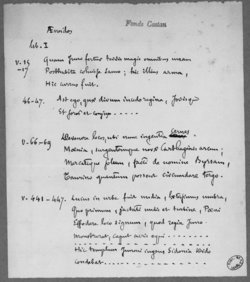 Fonds Coutan
Æneidos
lib. I
V. 15-17 Quam Juno fertur terris magis omnibus unam
Posthabita coluisse Samo; hic illius arma,
Hic currus fuit.
46-47. Ast ego, quæ divum incedo regina, Jovisque
Et soror et conjux
V. 66-69
Mœnia, surgentemque novæ Carthaginis arcem;
Mercatique solum, facti de nomine Byrsam,
Taurino quantum possent circumdare tergo.
V. 441-447. Lucus in urbe fuit media, lætissimus umbra,
Quo primum, jactati undis et turbine, Pœni
Effodere loco signum, quod regia Juno
Monstrarat, caput acris equi
Hic templum Junoni ingens Sidonia Dido
Condebat